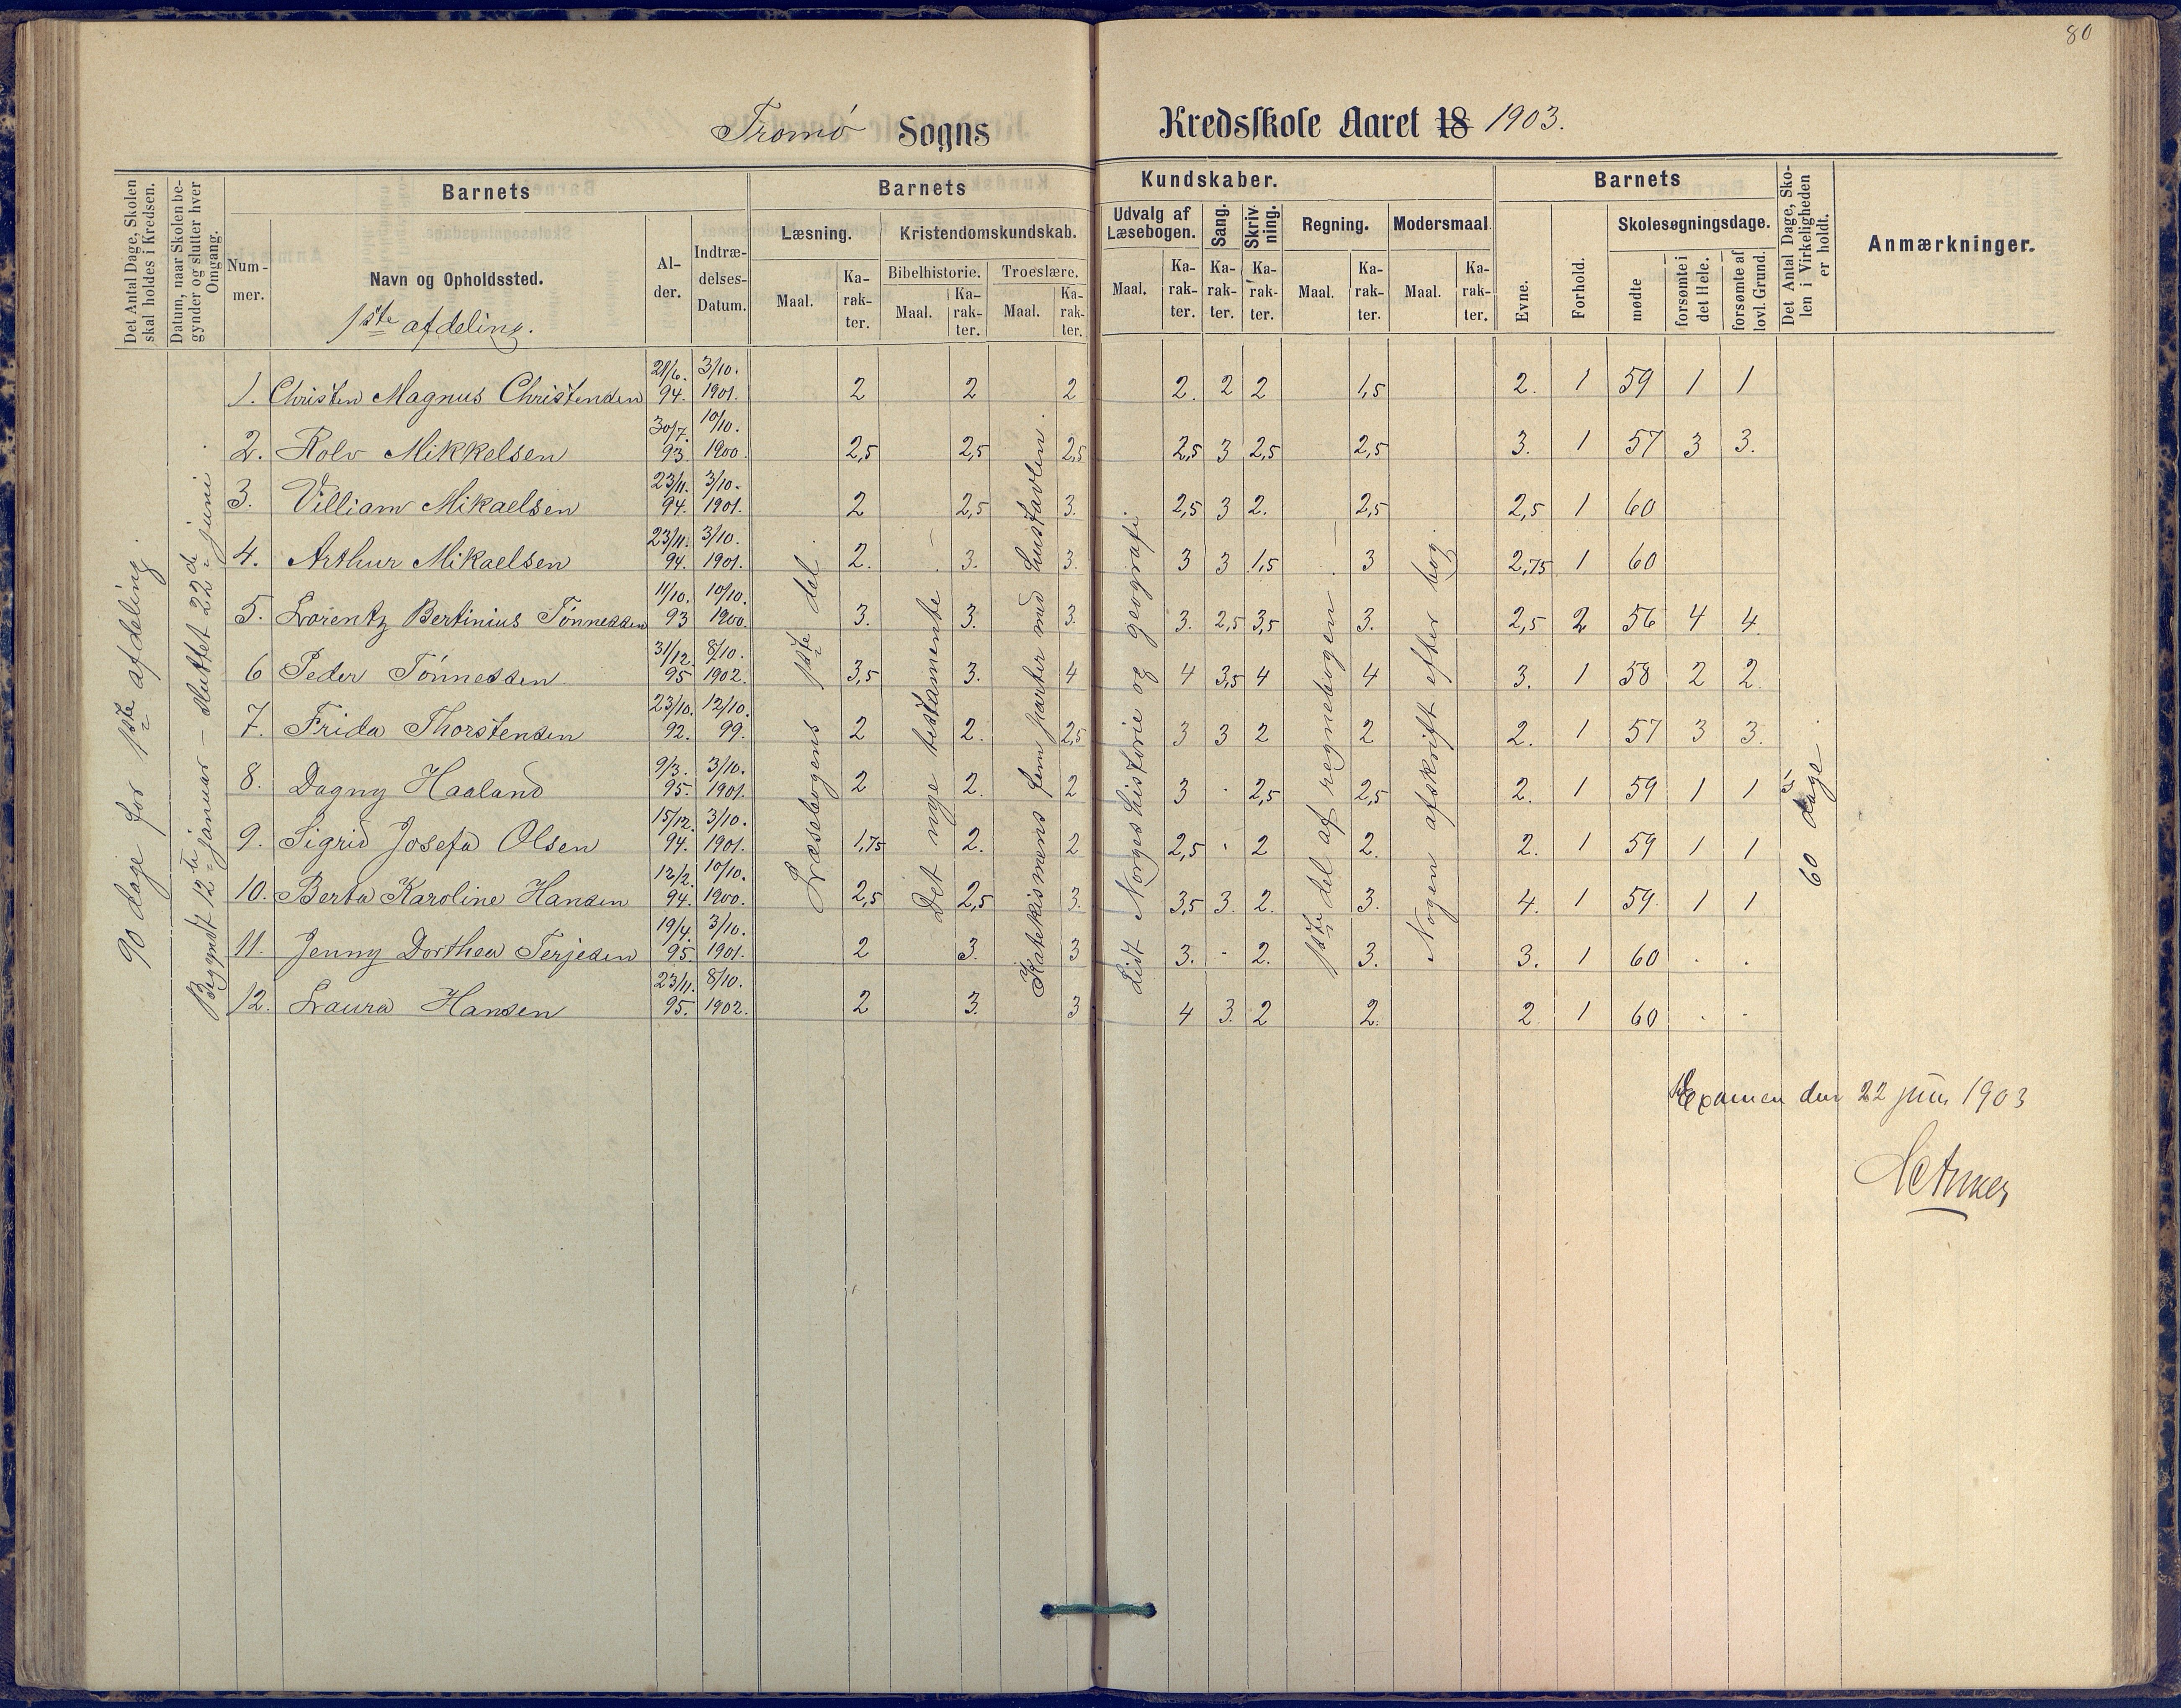 80
Tromø Sogns Kredsskole Aaret 18 1903.
Det Antal Dage, Skolen skal holdes i Kredsen.
Datum, naar Skolen begynder og slutter hver Omgang.
Barnets
Nummer.
Navn og Opholdssted.
1ste afdeling.
Alder.
Indtrædelses-Datum.
Barnets Kundskaber.
Læsning.
Maal. Karakter.
Kristendomskundskab.
Bibelhistorie. Troeslære.
Maal. Karakter. Maal. Karakter.
Udvalg af Læsebogen.
Maal. Karakter.
Sang. Karakter.
Skrivning. Karakter.
Regning.
Maal. Karakter.
Modersmaal
Maal. Karakter.
Barnets
Evne. Forhold.
Skolesøgningsdage.
mødte forsømte i det Hele. forsømte af lovl. Grund.
Det Antal Dage, Skolen i Virkeligheden er holdt.
Anmærkninger.
90 dage for 1ste afdeling.
Begyndt 12te januar - sluttet 22de juni.
Læsebogens 1ste del.
Det nye testamente
Katekismens fem parter med hustavlen.
Lidt Norgeshistorie og geografi.
1ste del af regnebogen
Nogen afskrift efter bog.
60 dage.
1. Christen Magnus Christensen 21/6. 94. 3/10. 1901. 2 2 2 2. 2 2 1,5 2. 1 59 1 1
2. Rolv Mikkelsen 30/7. 93. 10/10. 1900. 2,5 2,5 2,5 2,5 3 2,5 2,5 3. 1 57 3 3.
3. Villiam Mikaelsen 23/11. 94. 3/10. 1901. 2 2,5 3. 2,5 3 2. 2,5 2,5 1 60
4. Arthur Mikaelsen 23/11. 94. 3/10. 1901. 2. 3. 3. 3 3 1,5 3 2,75 1 60
5. Lorentz Bertinius Tønnessen 11/10. 93 10/10. 1900. 3. 3. 3. 3. 2,5 3,5 3. 2,5 2 56 4 4.
6 Peder Tønnessen 31/12. 95 8/10. 1902. 3,5 3. 4 4 3,5 4 4 3. 1 58 2 2.
7. Frida Thorstensen 23/10. 92. 12/10. 99. 2 2. 2,5 3 3 2 2 2. 1 57 3 3.
8. Dagny Haaland 9/3. 95. 3/10. 1901. 2 2. 2 3 · 2,5 2,5 2. 1 59 1 1
9. Sigrid Josefa Olsen 15/12. 94. 3/10. 1901. 1,75 2. 2 2,5 · 2 2. 2. 1 59 1 1
10. Berta Karoline Hansen 12/2. 94. 10/10. 1900. 2,5 2,5 3. 3,5 3. 2. 3. 4. 1 59. 1 1
11. Jenny Dorthea Terjesen 19/4. 95 3/10. 1901. 2 3. 3 3. - 2. 3. 3. 1 60 . .
12. Laura Hansen 23/11. 95. 8/10. 1902. 2 3. 3 4 3. 2 2. 2 1 60 . .
Examen den 22 juni 1903